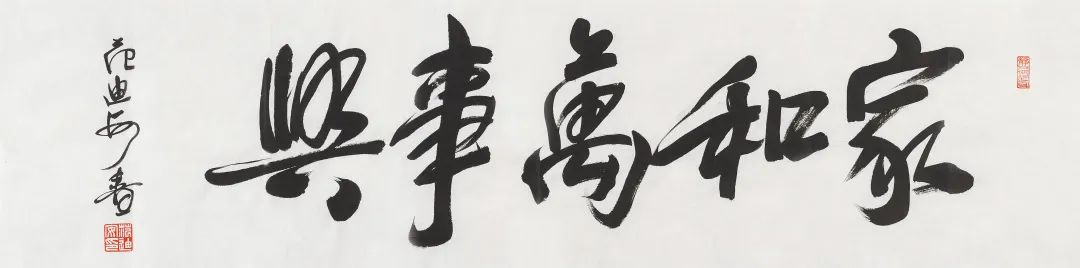 家和萬事興
范迪安書